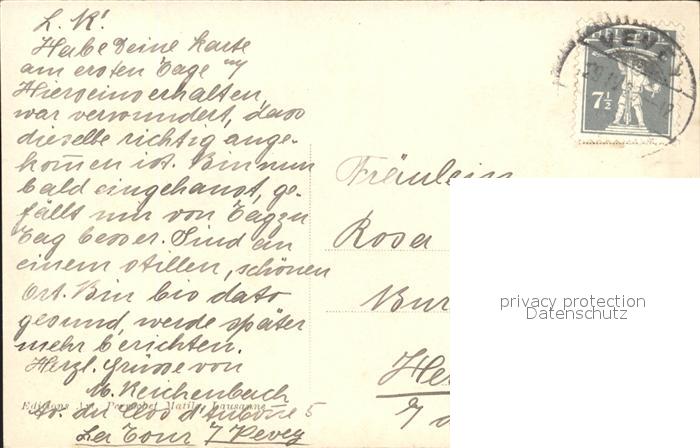 L. K!
Habe Deine Karte
am ersten Tage m/
Hierseins erhalten,
war verwundert, dass
dieselbe richtig ange-
kom̄en ist. Bin nun
bald eingehaust, ge-
fällt mir von Tag zu
Tag besser. Sind an
einem stillen, schönen
Ort. Bin bis dato
gesund, werde später
mehr berichten.
Herzl. Grüsse von
M. Reichenbach
Av. du Clos d'Aubonne 5
La Tour s/Vevey
Editions Art. Perrochet Matile, Lausanne
HELVETIA
7½
VEVEY
Fräulein
Rosa
Bur
privacy protection
Datenschutz